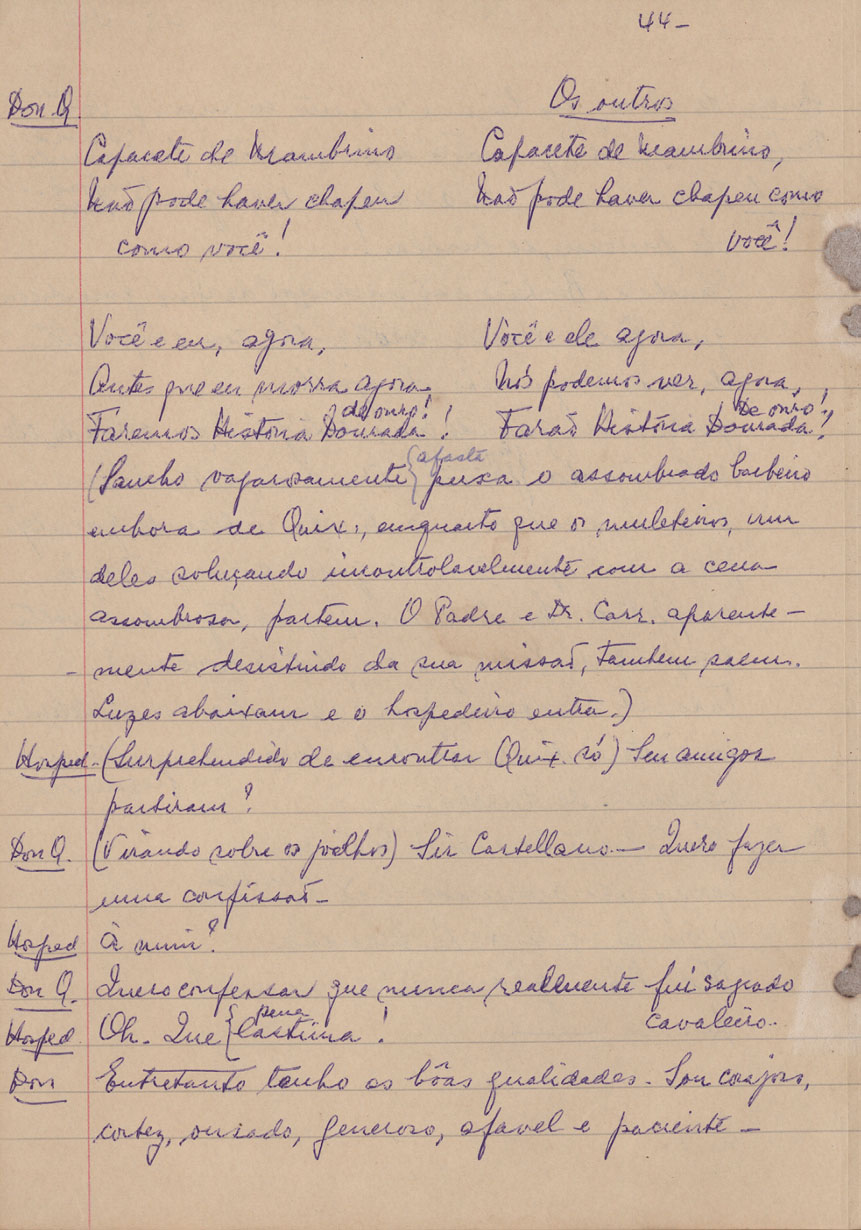 44-
Don Q
Os outros
Capacete de Mambrino
Não pode haver chapeu
como você!
Capacete de Mambrino,
Não pode haver chapeu como
você!
Você e eu, agora,
Antes que eu morra agora
de ouro!
Faremos História Dourada!
Você e ele agora,
Nós podemos ver, agora,
De ouro!
Farão História Dourada!
afasta
(Sancho vagarosamente { puxa o assombrado barbeiro
embora de Quix., enquanto que os muleteiros, um
deles soluçando incontrolavelmente com a cena
assombrosa, partem. O Padre e Dr. Carr. aparente-
mente desistindo da sua missão, tambem saem.
Luzes abaixam e o hospedeiro entra.)
Hosped - (Surprehendido de encontrar Quix. só) Seu amigos
partiram?
Don Q. (Virando sobre os joelhos) Sir Castellano - Quero fazer
uma confissão -
Hosped À mim?
Don Q. Quero confessar que nunca realmente fui sagrado
cavaleiro.
pena
Hosped Oh. Que { lastima!
Don Entretanto tenho as bôas qualidades. Sou corajoso,
cortez, ousado, generoso, afavel e paciente -